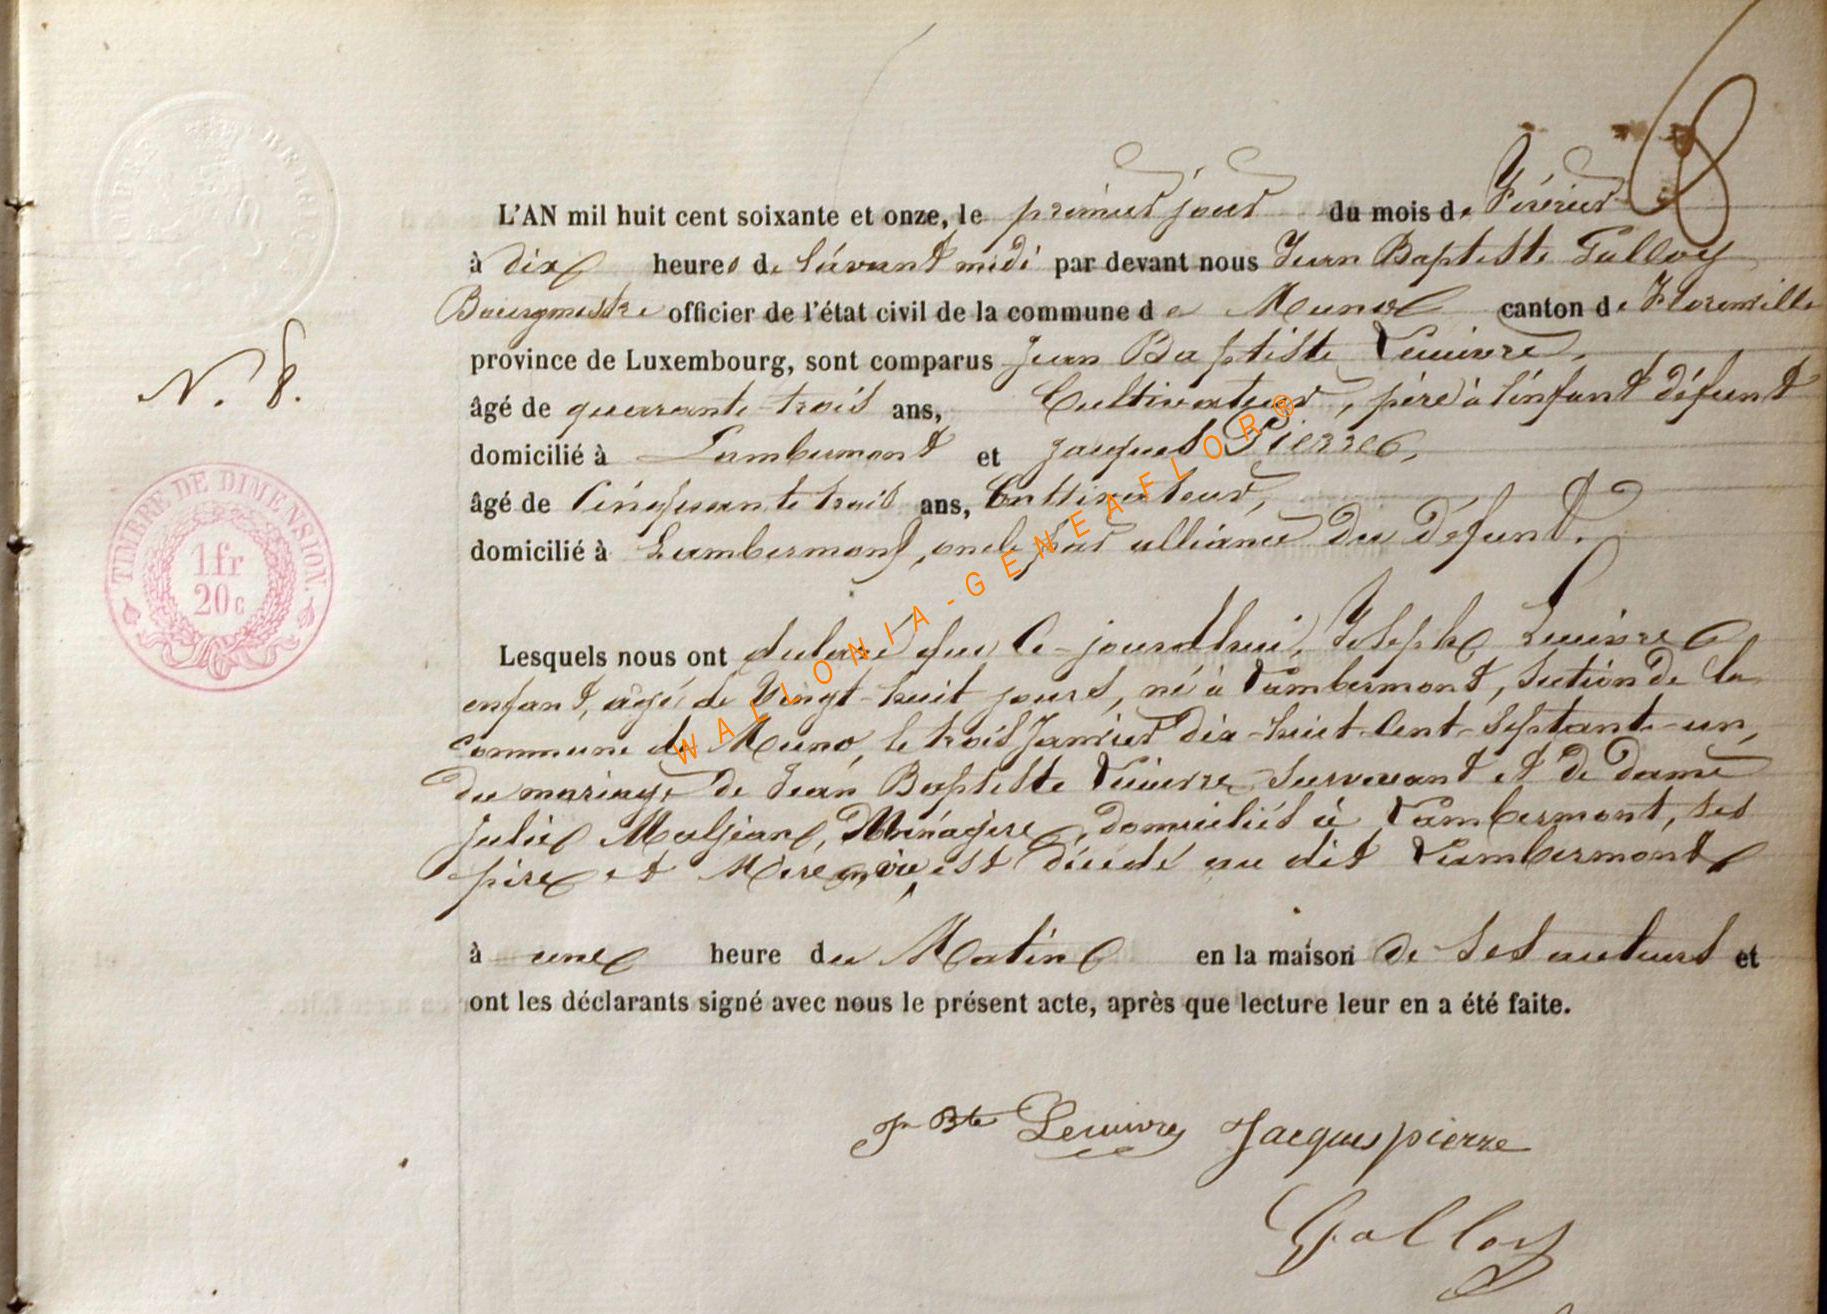 L'AN mil huit cent soixante et onze, le premier jour du mois de Février
à dix heures de l'avant midi par devant nous Jean Baptiste Galloy
Bourgmestre officier de l'état civil de la commune de Muno canton de Florenville
province de Luxembourg, sont comparus Jean Baptiste Lecuivre,
N. 8.
âgé de quarante-trois ans, Cultivateur, père à l'enfant défunt
domicilié à Lambermont et Jacques Pierre,
âgé de Cinquante trois ans, Cultivateur,
domicilié à Lambermont, oncle par alliance du défunt.
TIMBRE DE DIMENSION.
1 fr
20 c
Lesquels nous ont déclaré que Ce-jourd'hui, Joseph Lecuivre
enfant, âgé de Vingt-huit jours, né à Lambermont, section de la
commune de Muno, le trois Janvier dix-huit-Cent-Septante-un,
du mariage de Jean Baptiste Lecuivre survivant et de dame
Julie Maljean, Ménagère, domiciliés à Lambermont, ses
père et Mère en vie, est décédé au dit Lambermont
à une heure du Matin en la maison de Ses auteurs et
ont les déclarants signé avec nous le présent acte, après que lecture leur en a été faite.
Jn Bte Lecuivre Jacques pierre
Galloy
WALLONIA-GENEAFLOR®